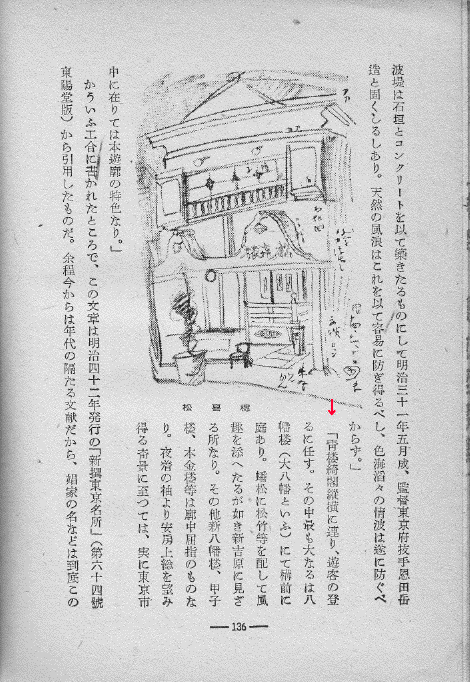 波堤は石垣とコンクリートを以て築きたるものにして明治三十一年五月成、監督東京府技手恩田岳
造と固くしるしあり。天然の風浪はこれを以て容易に防ぎ得るべし、色海滔々の情波は遂に防ぐべ
からず。」
「青楼綺閣縦横に連り、遊客の登
るに任す。その中最も大なるは八
幡楼（大八幡といふ）にて楼前に
庭あり。矮松に松竹等を配して風
趣を添へたるが如き新吉原に見ざ
る所なり。その他新八幡楼、甲子
楼、本金楼等は廓中屈指のものな
り。夜沿の柚より安房上総を望み
得る青景に至つては、実に東京市
中に在りては本遊廓の特色なり。」
かういふ工合に書かれたところで、この文章は明治四十二年発行の『新撰東京名所』（第六十四號
東陽堂版）から引用したものだ。余程今からは年代の隔たる文献だから、娼家の名などは到底この
松喜楼
— 136 —